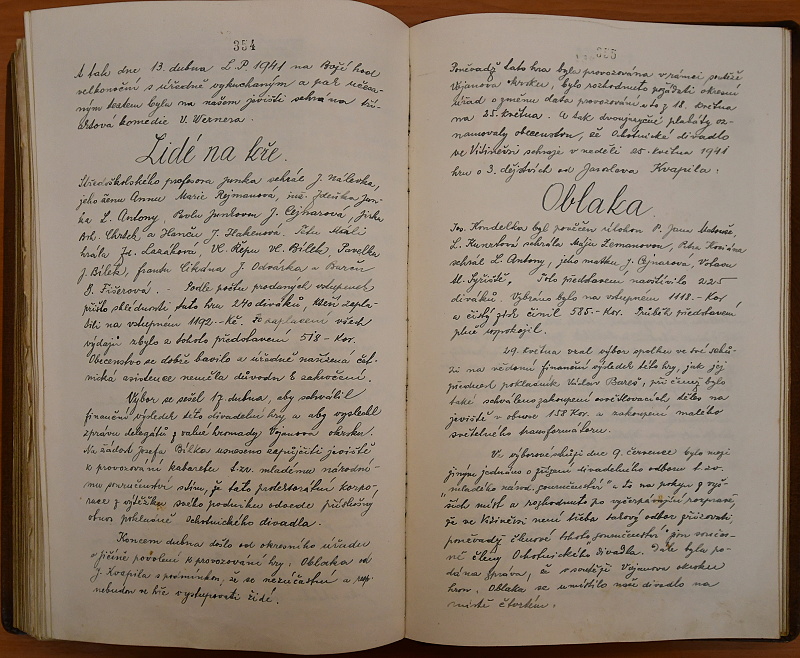 354
A tak dne 13. dubna L.P. 1941 na Boží hod
velikonoční s úředně vykuchaným a pak učesa-
ným textem byla na našem jevišti sehrána tří-
aktová komedie V. Wernera.
Lidé na kře.
Středoškolského profesora Junka sehrál J. Nálevka,
jeho ženu Annu Marie Rejmanová, inž. Zdeňka Jun-
ka L. Antony, Pavlu Junkovou J. Cejnarová, Jirku
Boh. Chrtek a Hanču J. Flakenová. Tetu Máli
hrála Zd. Lazáková, Vl. Řepu Vl. Bílek, Pavelka
J. Bílek, Frantu Cikána J. Odvárka a Baren
B. Fišerová. - Podle počtu prodaných vstupenek
přišlo shlédnouti tuto hru 240 diváků, kteří zapla-
tili na vstupném 1192.- Kč. Po zaplacení všech
výdajů zbylo z tohoto představení 518.- Kor.
Obecenstvo se dobře bavilo a úředně nařízená čet-
nická asistence neměla důvodu k zakročení.
Výbor se sešel 17. dubna, aby schválil
finanční výsledek této divadelní hry a aby vyslechl
zprávu delegátů z valné hromady Vojanova okrsku.
Na žádost Josefa Bílka usneseno zapůjčiti jeviště
k provozování kabaretu t.zv. mladému národní-
mu souručenství s tím, že tato protektorátní korpo-
race z výtěžku svého podniku odvede příslušný
obnos pokladně Ochotnického divadla.
Koncem dubna došlo od okresního úřadu
v Jičíně povolení k provozování hry: Oblaka od
J. Kvapila s připomínkou, že se nezúčastní a resp.
nebudou ve hře vystupovati židé.
355
Poněvadž tato hra byla provozována v rámci soutěže
Vojanova okrsku, bylo rozhodnuto požádati okresní
úřad o změnu data provozování a to z 18. května
na 25. května. A tak dvoujazyčné plakáty oz-
namovaly obecenstvu, že Ochotnické divadlo
ve Vitiněvsi sehraje v neděli 25. května 1941
hru o 3. dějstvích od Jaroslava Kvapila:
Oblaka
Jos. Kondelka byl pověřen úlohou P. Jana Matouše,
L. Kunertová sehrála Máju Zemanovou, Petra Kociána
sehrál L. Antony, jeho matku J. Cejnarová, Votavu
M. Syřiště. Toto představení navštívilo 225
diváků. Vybráno bylo na vstupném 1118.- Kor
a čistý zisk činil 585.- Kor. Průběh představení
plně uspokojil.
29. května vzal výbor spolku ve své schů-
zi na vědomí finanční výsledek této hry, jak jej
přednesl pokladník Václav Bareš, při čemž bylo
také schváleno zakoupení osvětlovacích těles na
jeviště v obnose 158 Kor a zakoupení malého
světelného transformátoru.
Ve výborové schůzi dne 9. července bylo mezi
jiným jednáno o zřízení divadelního odboru t.zv.
"mladého národ. souručenství" a to na pokyn z vyš-
ších míst a rozhodnuto po vyčerpávající rozpravě,
že ve Vitiněvsi není třeba takový odbor zřizovati,
poněvadž členové tohoto souručenství jsou součas-
ně členy Ochotnického divadla. Dále byla po-
dána zpráva, že v soutěži Vojanova okrsku
hrou: Oblaka se umístilo naše divadlo na
místě čtvrtém.